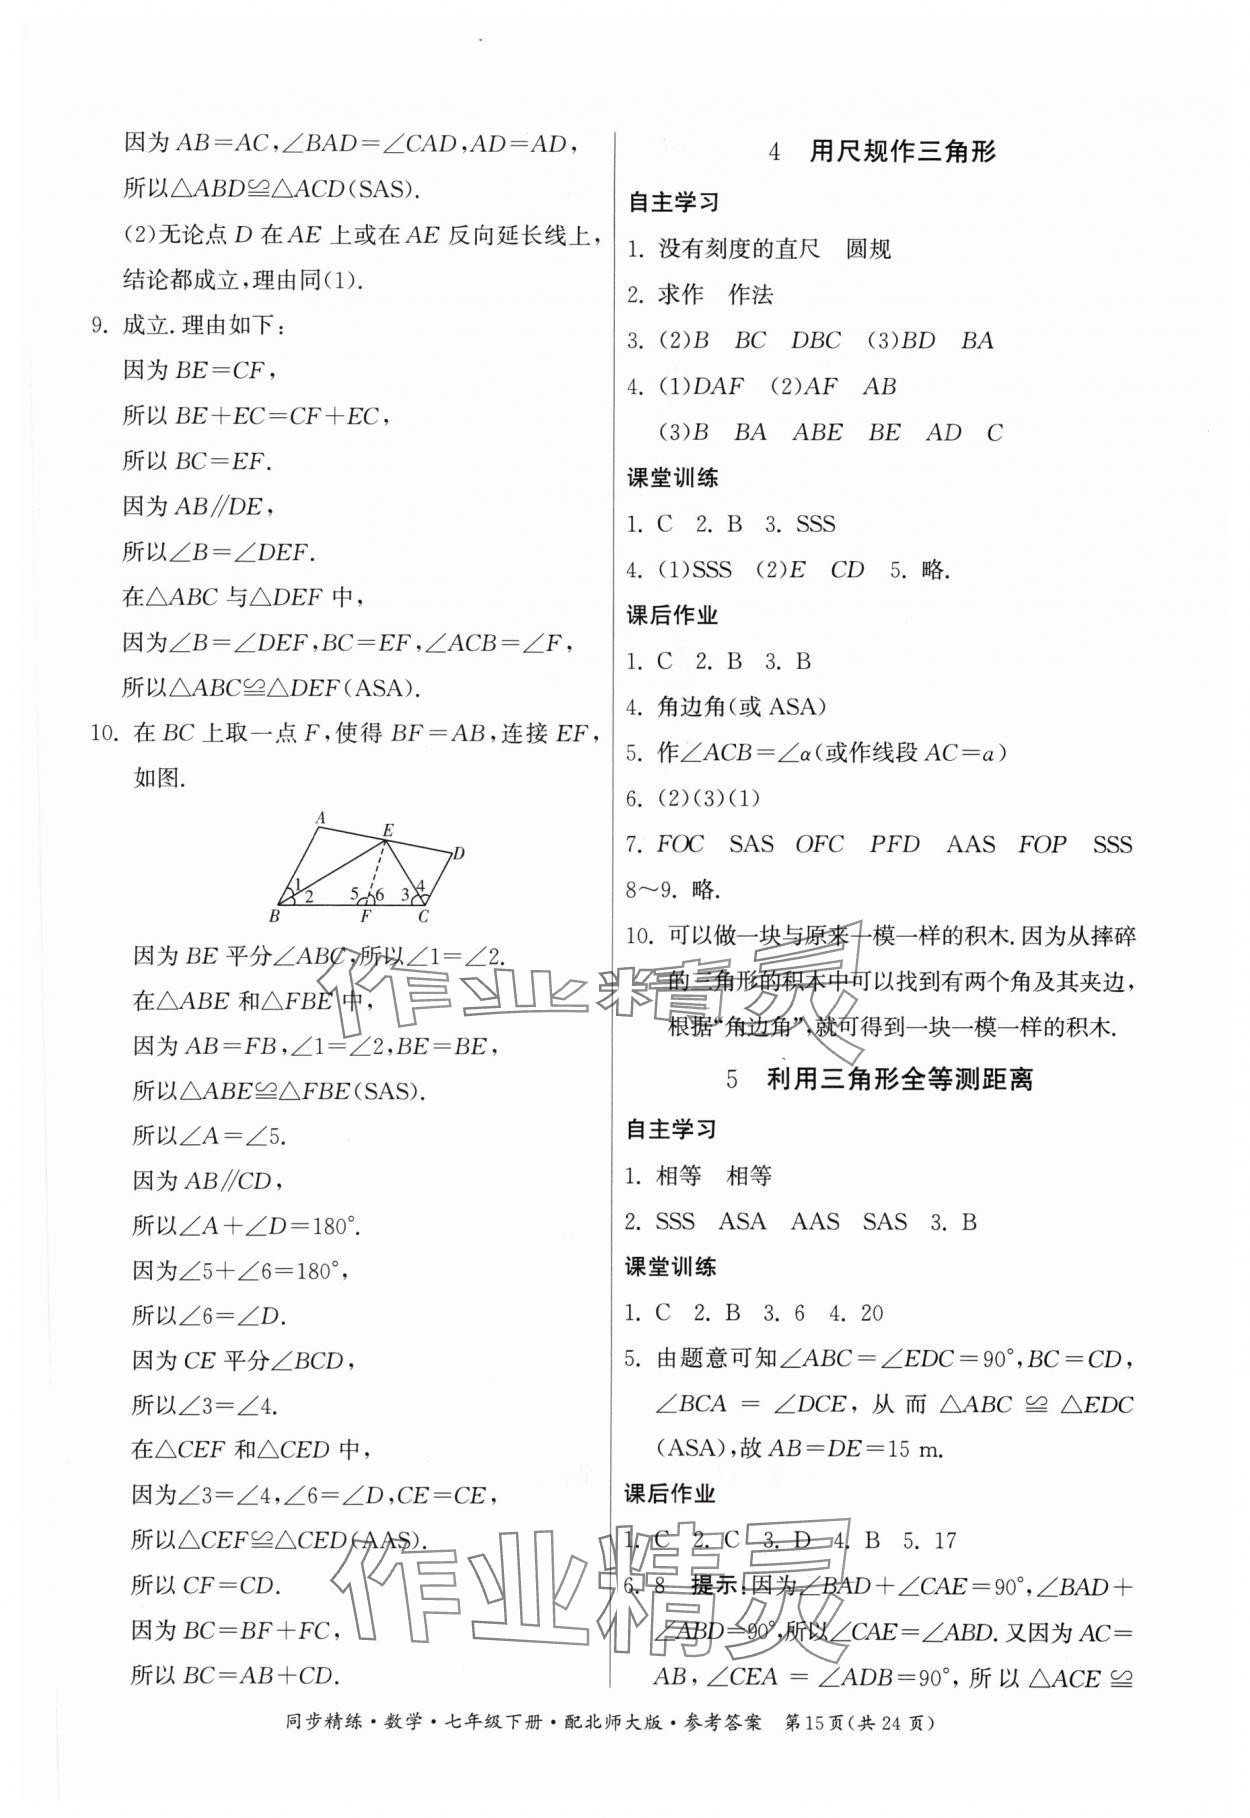 因为 AB=AC,∠BAD=∠CAD,AD=AD,
所以△ABD≌△ACD(SAS).
(2)无论点 D 在 AE 上或在 AE 反向延长线上,
结论都成立,理由同(1).
9. 成立.理由如下:
因为 BE=CF,
所以 BE+EC=CF+EC,
所以 BC=EF.
因为 AB∥DE,
所以∠B=∠DEF.
在△ABC 与△DEF 中,
因为∠B=∠DEF,BC=EF,∠ACB=∠F,
所以△ABC≌△DEF(ASA).
10. 在 BC 上取一点 F,使得 BF=AB,连接 EF,
如图.
A
E
D
1 2 5 6 3 4
B F C
因为 BE 平分∠ABC,所以∠1=∠2.
在△ABE 和△FBE 中,
因为 AB=FB,∠1=∠2,BE=BE,
所以△ABE≌△FBE(SAS).
所以∠A=∠5.
因为 AB∥CD,
所以∠A+∠D=180°.
因为∠5+∠6=180°,
所以∠6=∠D.
因为 CE 平分∠BCD,
所以∠3=∠4.
在△CEF 和△CED 中,
因为∠3=∠4,∠6=∠D,CE=CE,
所以△CEF≌△CED(AAS).
所以 CF=CD.
因为 BC=BF+FC,
所以 BC=AB+CD.
4 用尺规作三角形
自主学习
1. 没有刻度的直尺 圆规
2. 求作 作法
3. (2)B BC DBC (3)BD BA
4. (1)DAF (2)AF AB
(3)B BA ABE BE AD C
课堂训练
1. C 2. B 3. SSS
4. (1)SSS (2)E CD 5. 略.
课后作业
1. C 2. B 3. B
4. 角边角(或 ASA)
5. 作∠ACB=∠α(或作线段 AC=a)
6. (2)(3)(1)
7. FOC SAS OFC PFD AAS FOP SSS
8~9. 略.
10. 可以做一块与原来一模一样的积木.因为从摔碎
的三角形的积木中可以找到有两个角及其夹边,
根据“角边角”,就可得到一块一模一样的积木.
5 利用三角形全等测距离
自主学习
1. 相等 相等
2. SSS ASA AAS SAS 3. B
课堂训练
1. C 2. B 3. 6 4. 20
5. 由题意可知∠ABC=∠EDC=90°,BC=CD,
∠BCA = ∠DCE, 从而 △ABC ≌ △EDC
(ASA),故 AB=DE=15 m.
课后作业
1. C 2. C 3. D 4. B 5. 17
6. 8 提示:因为∠BAD+∠CAE=90°,∠BAD+
∠ABD=90°,所以∠CAE=∠ABD.又因为 AC=
AB, ∠CEA = ∠ADB=90°, 所以 △ACE ≌
作业精灵
作业精灵
同步精练·数学·七年级下册·配北师大版·参考答案 第15页(共24页)